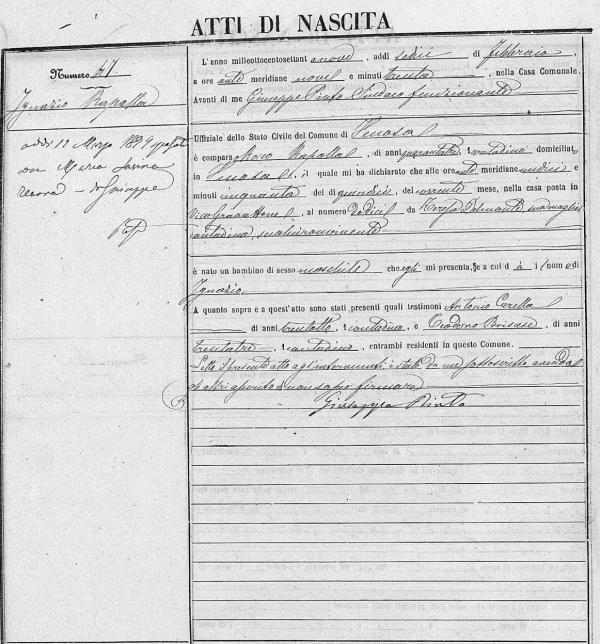 ATTI DI NASCITA
Numero 47.
Ignazio Rapolla
addi 12 Marzo 1899
con Maria
di Giuseppe
L'anno milleottocentosettantanove, addi sedici di febbraio,
a ore anti meridiane nove e minuti trenta, nella Casa Comunale.
Avanti di me Giuseppe Sindaco funzionante
Uffiziale dello Stato Civile del Comune di Venosa
è comparso Rocco Rapolla, di anni quarantatre, contadino domiciliato
in Venosa, il quale mi ha dichiarato che alle ore anti meridiane undici e
minuti cinquanta del dì quindici, del corrente mese, nella casa posta in
Vico, al numero dodici da Teresa sua moglie
contadina, seco lui convivente
è nato un bambino di sesso maschile che egli mi presenta, e a cui dà il nome di
Ignazio.
A quanto sopra e a quest'atto sono stati presenti quali testimoni Antonio Carella
di anni trentotto, contadino, e, di anni
trentatre, contadino, entrambi residenti in questo Comune.
Letto il presente atto agl'intervenuti è stato da me sottoscritto, avendo
gli altri asserito di non saper firmare
Giuseppe